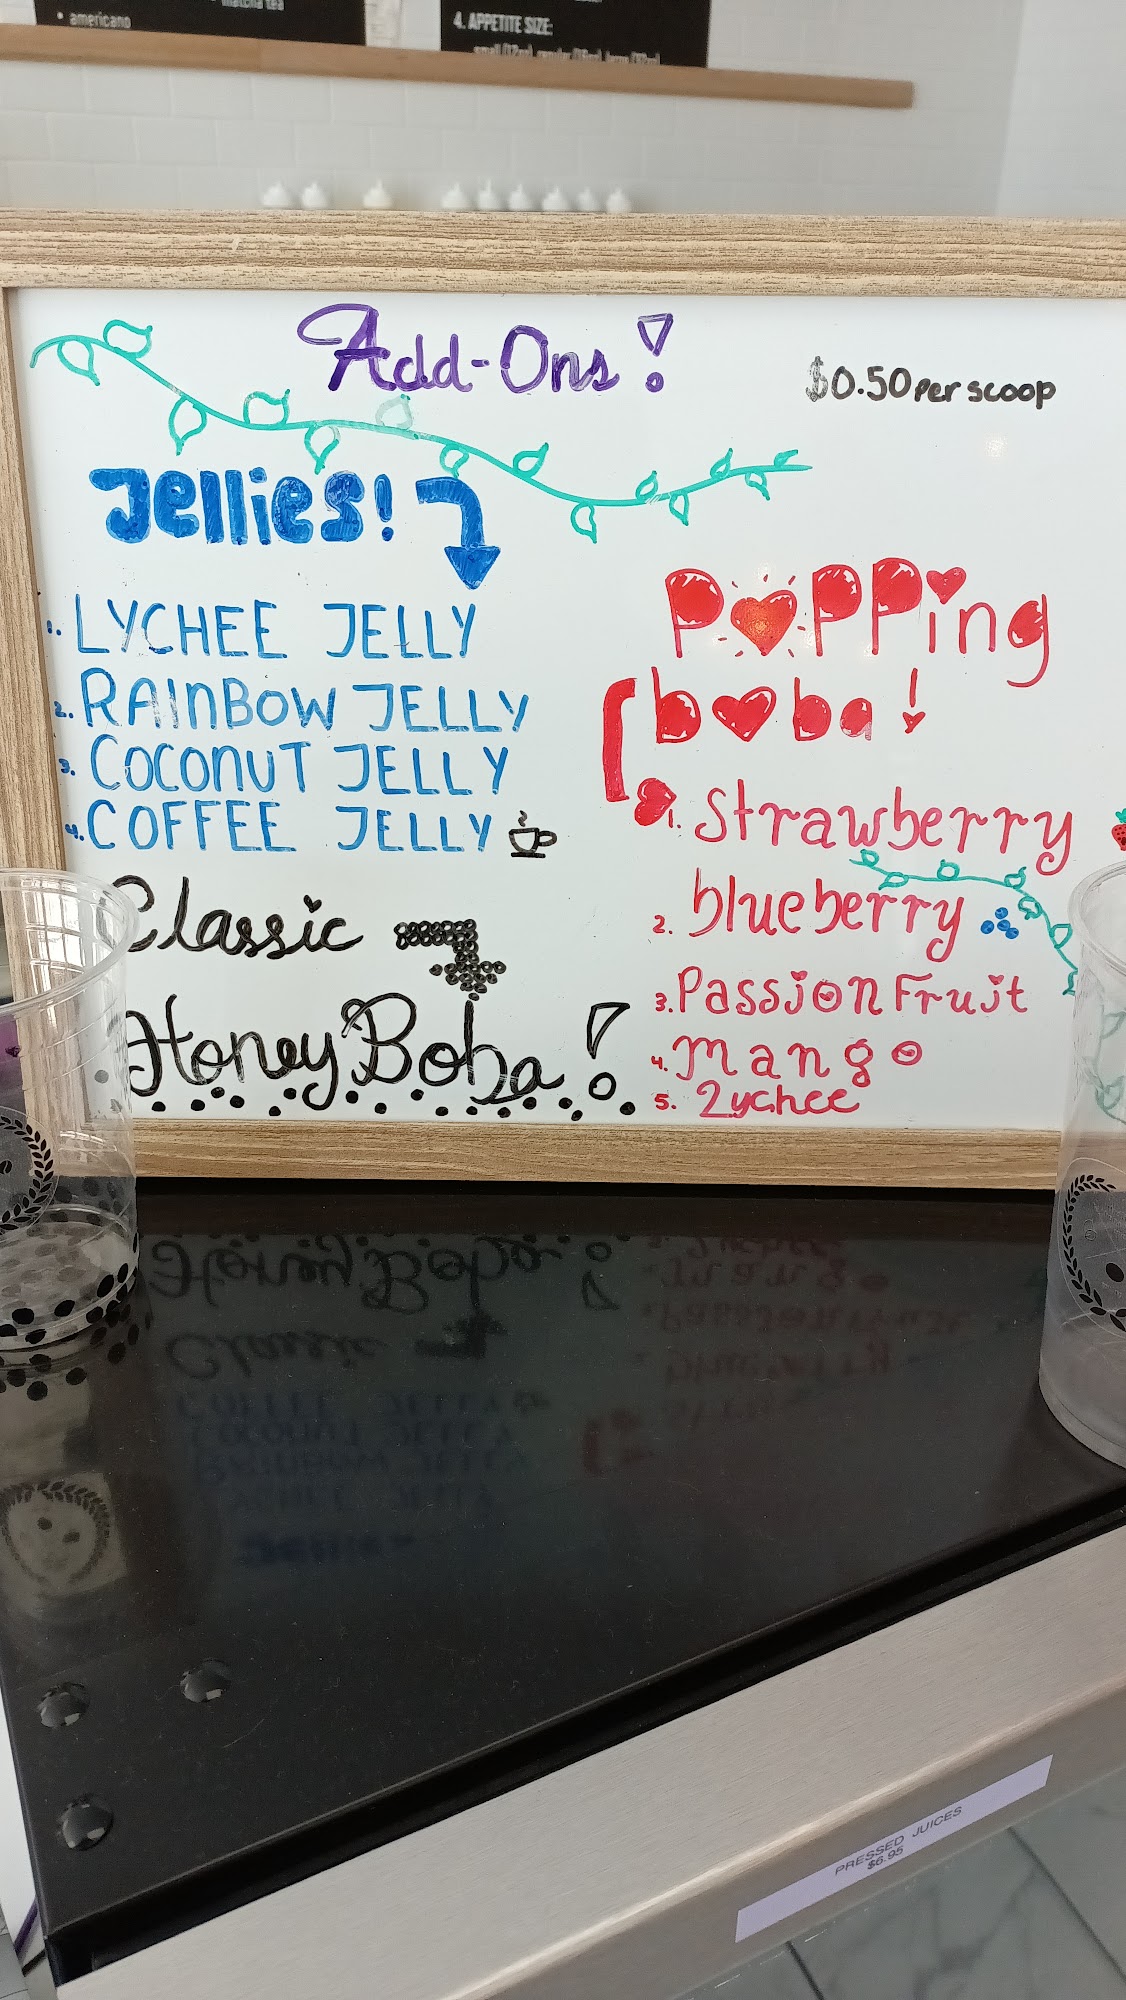 matcha tea
• americano
4. APPETITE SIZE:
Add-Ons!
$0.50 per scoop
Jellies!
1. LYCHEE JELLY
2. RAINBOW JELLY
3. COCONUT JELLY
4. COFFEE JELLY
Classic
Honey Boba!
Popping
boba!
1. Strawberry
2. blueberry
3. Passion Fruit
4. Mango
5. Lychee
PRESSED JUICES
$6.95